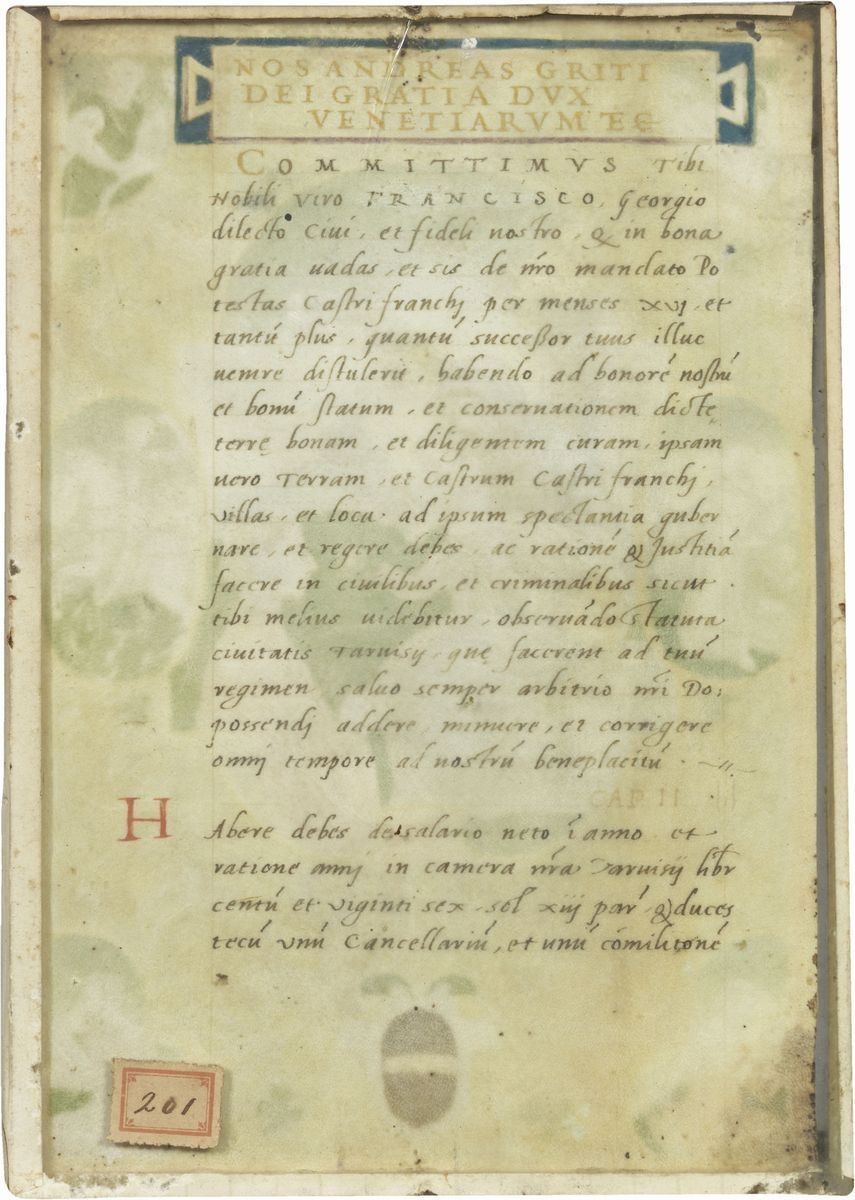 NOS ANDREAS GRITI
DEI GRATIA DVX
VENETIARVM ET
COMMITTIMVS Tibi
Nobili viro FRANCISCO, Georgio
dilecto Ciui, et fideli nostro, & in bona
gratia uadas, et sis de nr̃o mandato Po
testas Castri franchj per menses xvj, et
tantú plus, quantú successor tuus illuc
uenire distulerit, habendo ad honoré nostrú
et bonú statum, et conseruationem dictę
terrę bonam, et diligentem curam, ipsam
uero Terram, et Castrum Castri franchj,
villas, et loca ad ipsum spectantia guber
nare, et regere debes, ac rationé & Justitiá
facere in ciuilibus, et criminalibus sicut
tibi melius uidebitur, obseruádo statuta
ciuitatis Taruisij, quę facerent ad tuú
regimen saluo semper arbitrio nr̃i Do:
possendj addere, minuere, et corrigere
omnj tempore ad nostrú beneplacitú.
CAP II
HAbere debes de salario neto ĩ anno et
ratione annj in camera nr̃a Taruisij libr
centú et viginti sex, sol xiij par' & duces
tecú vnú Cancellariú, et unú cómilitoné
201